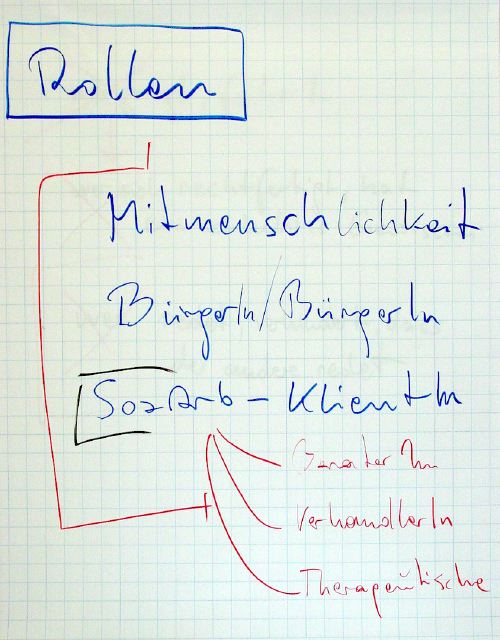 Rollen
Mitmenschlichkeit
BürgerIn/BürgerIn
SozArb - KlientIn
BeraterIn
VerhandlerIn
Therapeutische